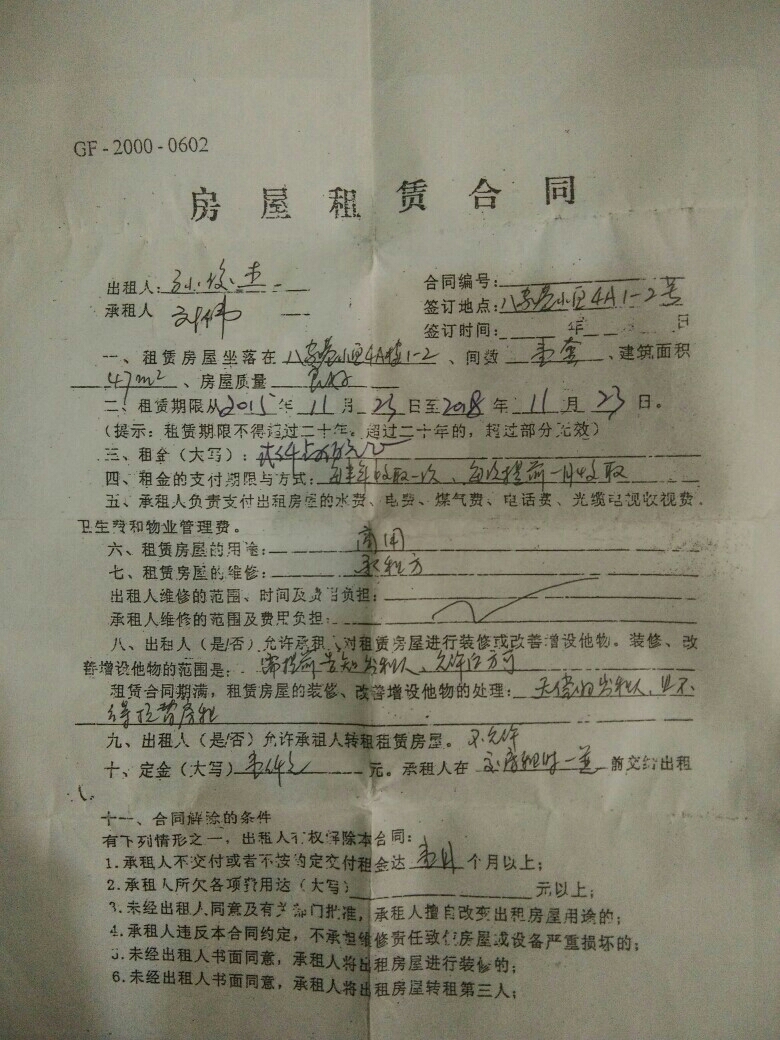 GF-2000-0602
房屋租赁合同
出租人:
合同编号:
承租人 刘伟
签订地点: 小区4A1-2号
签订时间: 年 日
一、租赁房屋坐落在 小区4A栋1-2 、间数 壹套 、建筑面积
47m² 、房屋质量 良好
二、租赁期限从2015年 11 月 23 日至2018 年 11 月 23 日。
(提示:租赁期限不得超过二十年。超过二十年的,超过部分无效)
三、租金(大写):
四、租金的支付期限与方式:每半年收取一次、每次提前一月收取
五、承租人负责支付出租房屋的水费、电费、煤气费、电话费、光缆电视收视费、
卫生费和物业管理费。
六、租赁房屋的用途: 商用
七、租赁房屋的维修: 承租方
出租人维修的范围、时间及费用负担:
承租人维修的范围及费用负担:
八、出租人(是/否)允许承租人对租赁房屋进行装修或改善增设他物。装修、改
善增设他物的范围是: 需提前告知出租人、允许后方可
租赁合同期满,租赁房屋的装修、改善增设他物的处理: 无偿归出租人,且不
得抵费房租
九、出租人(是/否)允许承租人转租租赁房屋。 不允许
十、定金(大写)壹仟元 元。承租人在 交房租时一并 前交给出租
人。
十一、合同解除的条件
有下列情形之一,出租人有权解除本合同:
1.承租人不交付或者不按约定交付租金达 壹月 个月以上;
2.承租人所欠各项费用达(大写) 元以上;
3.未经出租人同意及有关部门批准,承租人擅自改变出租房屋用途的;
4.承租人违反本合同约定,不承担维修责任致使房屋或设备严重损坏的;
5.未经出租人书面同意,承租人将出租房屋进行装修的;
6.未经出租人书面同意,承租人将出租房屋转租第三人;